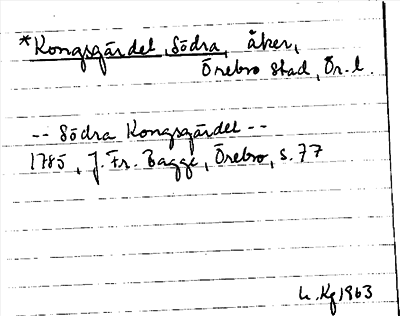 *Kongsgärdel, Södra, åker,
Örebro stad, Ör. l.
-- Södra Kongsgärdel --
1785, J. Fr. Bagge, Örebro, s. 77
L. Kg 1963